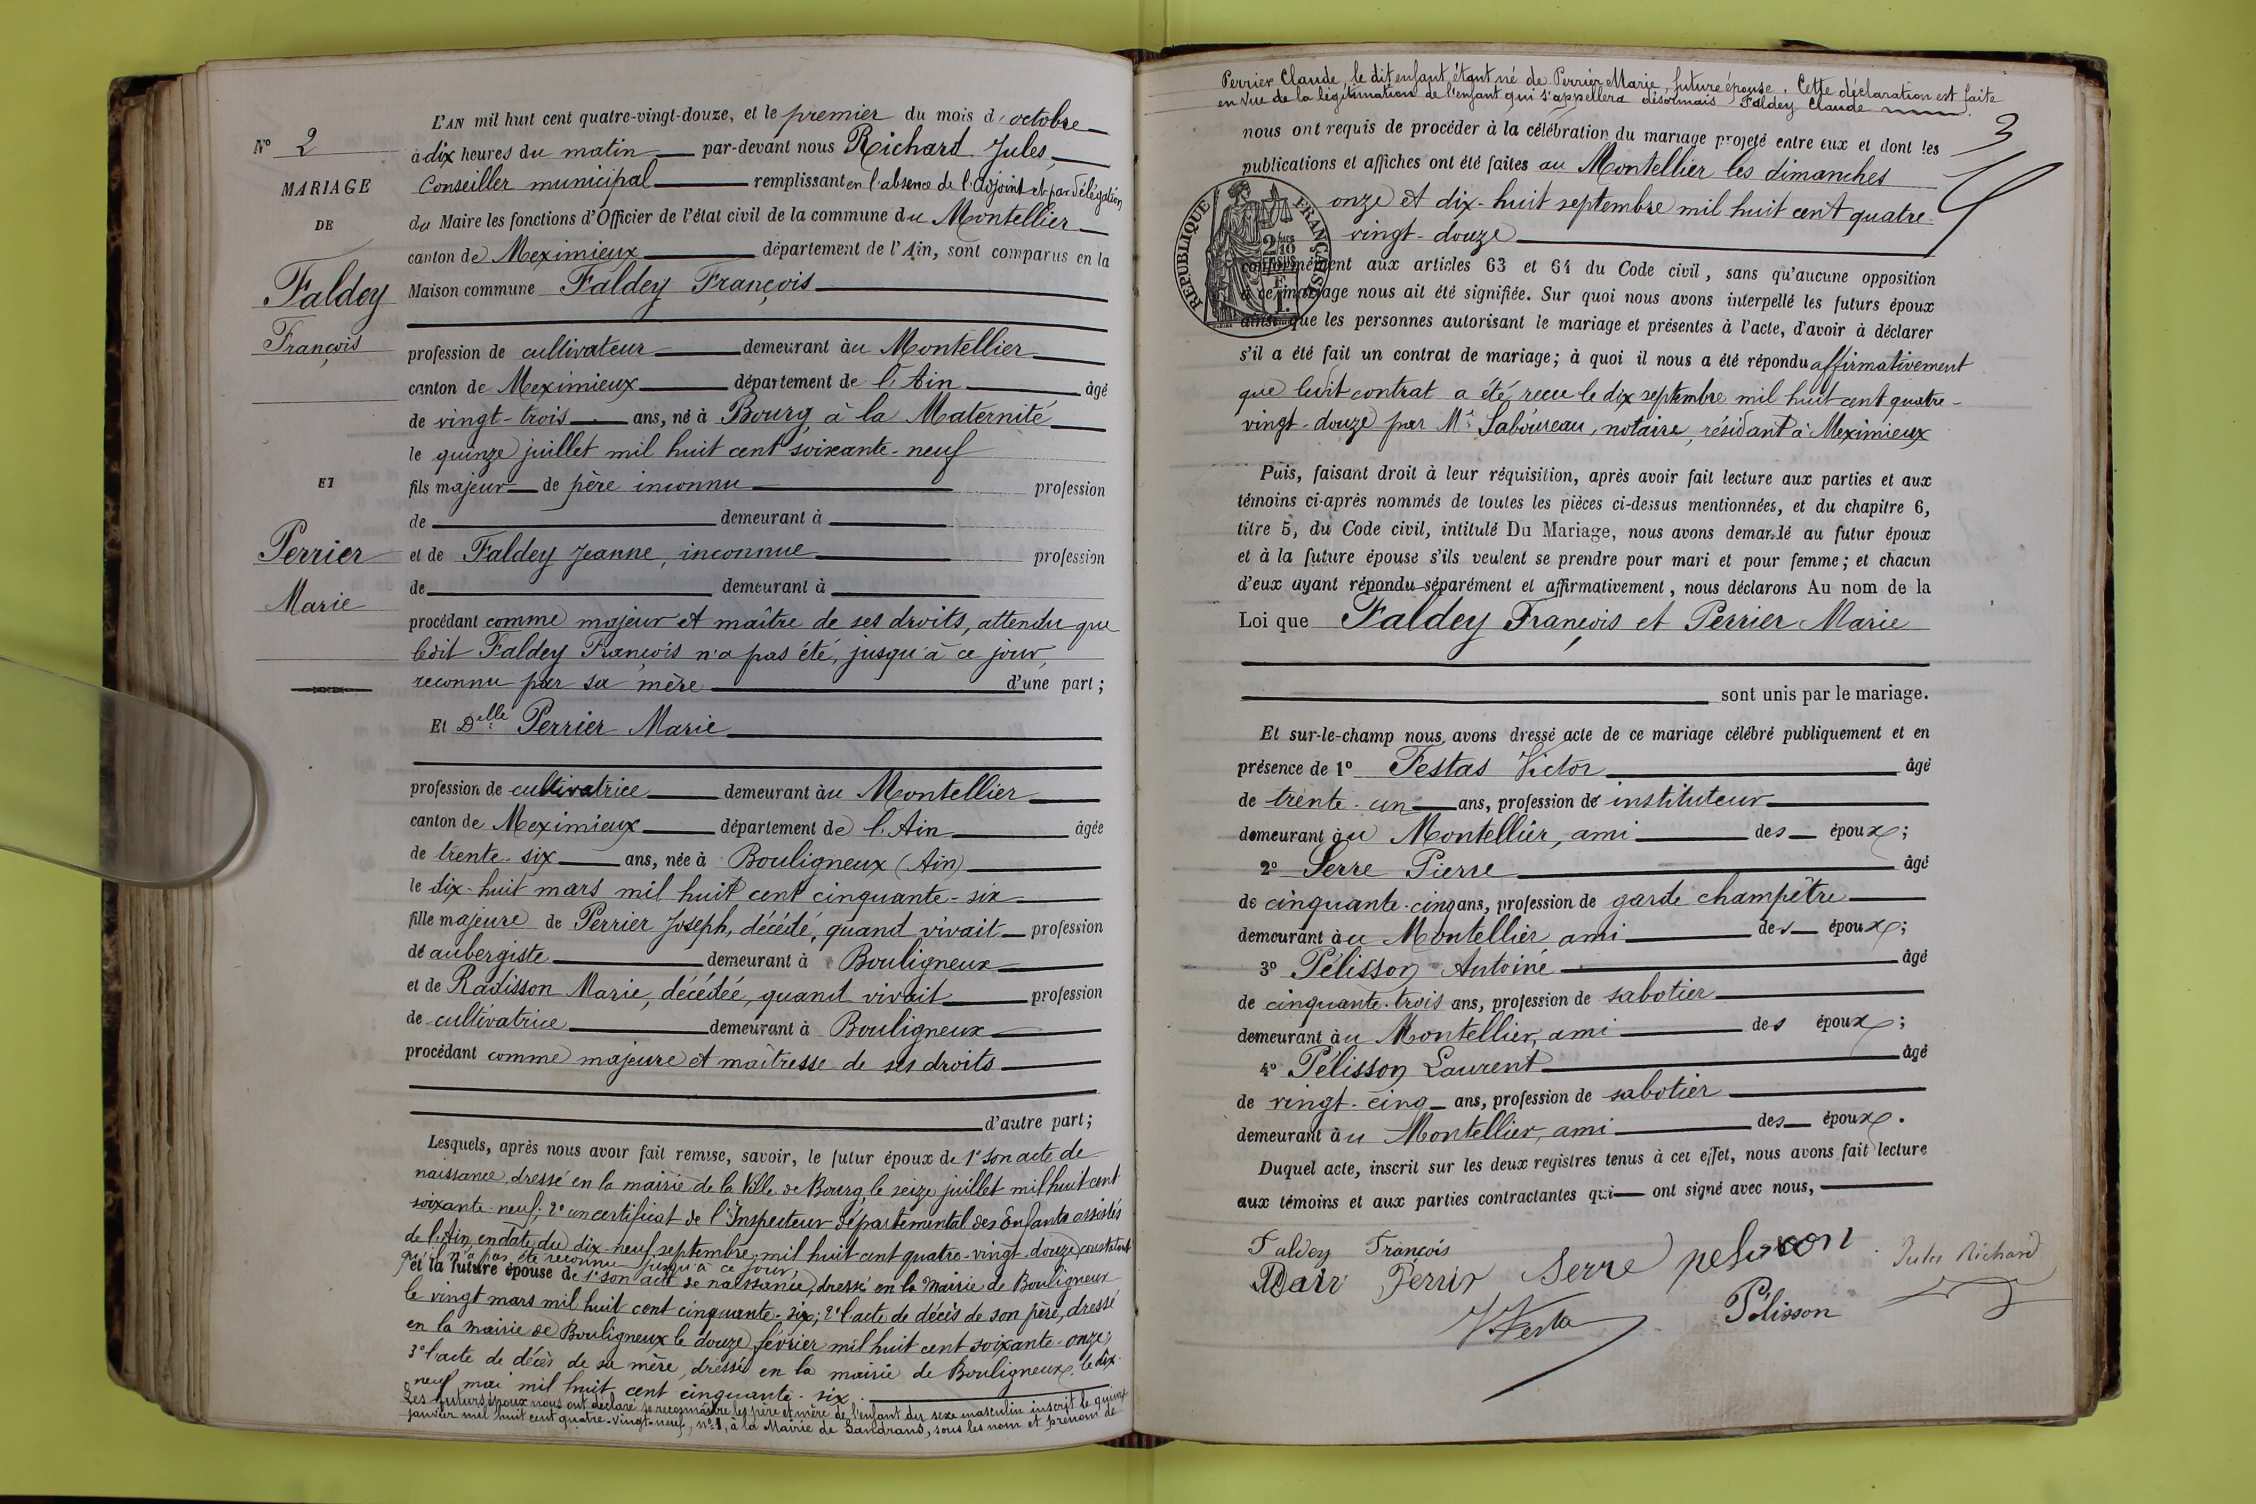 L'AN mil huit cent quatre-vingt-douze, et le premier du mois d'octobre
N° 2
à dix heures du matin par-devant nous Richard Jules,
MARIAGE
Conseiller municipal remplissant en l'absence de l'adjoint et par délégation
DE
du Maire les fonctions d'Officier de l'état civil de la commune du Montellier
canton de Meximieux département de l'Ain, sont comparus en la
Faldey
François
Maison commune Faldey François
profession de cultivateur demeurant au Montellier
canton de Meximieux département de l'Ain âgé
de vingt-trois ans, né à Bourg, à la Maternité
le quinze juillet mil huit cent soixante-neuf
ET
fils majeur de père inconnu profession
de demeurant à
Perrier
Marie
et de Faldey Jeanne, inconnue profession
de demeurant à
procédant comme majeur et maître de ses droits, attendu que
ledit Faldey François n'a pas été, jusqu'à ce jour,
reconnu par sa mère d'une part;
Et Delle Perrier Marie
profession de cultivatrice demeurant au Montellier
canton de Meximieux département de l'Ain âgée
de trente-six ans, née à Bouligneux (Ain)
le dix-huit mars mil huit cent cinquante-six
fille majeure de Perrier Joseph, décédé, quand vivait profession
de aubergiste demeurant à Bouligneux
et de Radisson Marie, décédée, quand vivait profession
de cultivatrice demeurant à Bouligneux
procédant comme majeure et maîtresse de ses droits
d'autre part;
Lesquels, après nous avoir fait remise, savoir, le futur époux de 1° son acte de
naissance, dressé en la mairie de la Ville de Bourg, le seize juillet mil huit cent
soixante-neuf; 2° un certificat de l'Inspecteur départemental des Enfants assistés
de l'Ain, en date du dix-neuf septembre mil huit cent quatre-vingt-douze, constatant
qu'il n'a pas été reconnu jusqu'à ce jour,
et la future épouse de 1° son acte de naissance, dressé en la Mairie de Bouligneux
le vingt mars mil huit cent cinquante-six; 2° l'acte de décès de son père, dressé
en la mairie de Bouligneux le douze février mil huit cent soixante-onze;
3° l'acte de décès de sa mère, dressé en la mairie de Bouligneux, le dix-
neuf mai mil huit cent cinquante-six.
Les futurs époux nous ont déclaré se reconnaître les père et mère de l'enfant du sexe masculin inscrit le quinze
janvier mil huit cent quatre-vingt-neuf, n° 1, à la Mairie de Sandrans, sous les nom et prénom de
Perrier Claude, le dit enfant étant né de Perrier Marie, future épouse. Cette déclaration est faite
en vue de la légitimation de l'enfant qui s'appellera désormais Faldey Claude.
3
nous ont requis de procéder à la célébration du mariage projeté entre eux et dont les
publications et affiches ont été faites au Montellier les dimanches
onze et dix-huit septembre mil huit cent quatre-
vingt-douze
REPUBLIQUE FRANÇAISE
conformément aux articles 63 et 64 du Code civil, sans qu'aucune opposition
à ce mariage nous ait été signifiée. Sur quoi nous avons interpellé les futurs époux
ainsi que les personnes autorisant le mariage et présentes à l'acte, d'avoir à déclarer
s'il a été fait un contrat de mariage; à quoi il nous a été répondu affirmativement
que ledit contrat a été reçu le dix septembre mil huit cent quatre-
vingt-douze par Me Saboureau, notaire, résidant à Meximieux
Puis, faisant droit à leur réquisition, après avoir fait lecture aux parties et aux
témoins ci-après nommés de toutes les pièces ci-dessus mentionnées, et du chapitre 6,
titre 5, du Code civil, intitulé Du Mariage, nous avons demandé au futur époux
et à la future épouse s'ils veulent se prendre pour mari et pour femme; et chacun
d'eux ayant répondu séparément et affirmativement, nous déclarons Au nom de la
Loi que Faldey François et Perrier Marie
sont unis par le mariage.
Et sur-le-champ nous avons dressé acte de ce mariage célébré publiquement et en
présence de 1° Festas Victor âgé
de trente-un ans, profession de instituteur
demeurant au Montellier, ami des époux;
2° Serre Pierre âgé
de cinquante-cinq ans, profession de garde champêtre
demeurant au Montellier, ami des époux;
3° Pélisson Antoine âgé
de cinquante-trois ans, profession de sabotier
demeurant au Montellier, ami des époux;
4° Pélisson Laurent âgé
de vingt-cinq ans, profession de sabotier
demeurant au Montellier, ami des époux.
Duquel acte, inscrit sur les deux registres tenus à cet effet, nous avons fait lecture
aux témoins et aux parties contractantes qui ont signé avec nous,
Faldey François Serre pelisson Jules Richard
Perrier
Pélisson